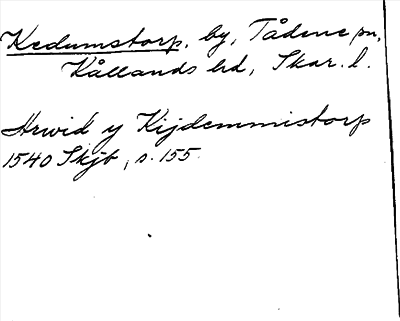 Kedumstorp, by, Tådene sn,
Kållands hd, Skar. l.
Arwid y Kijdemmistorp
1540 Skjb, s. 155.